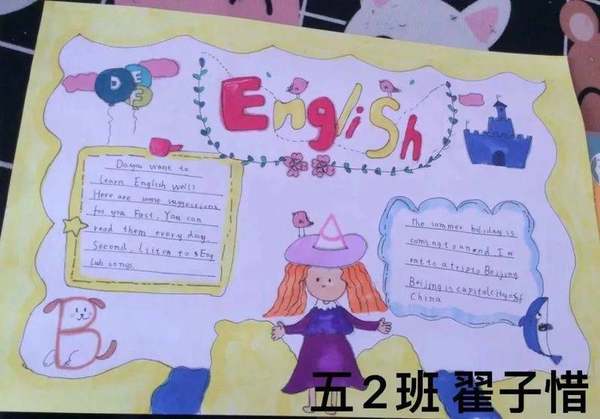 English
D E E
Do you want to
learn English well?
Here are some suggestions
for you First, You can
read them every day
Second, listen to sEng
Lish songs.
The summer holiday is
coming to an end I
Beijing
Beijing is capital city of
China
B
五2班 翟子惜